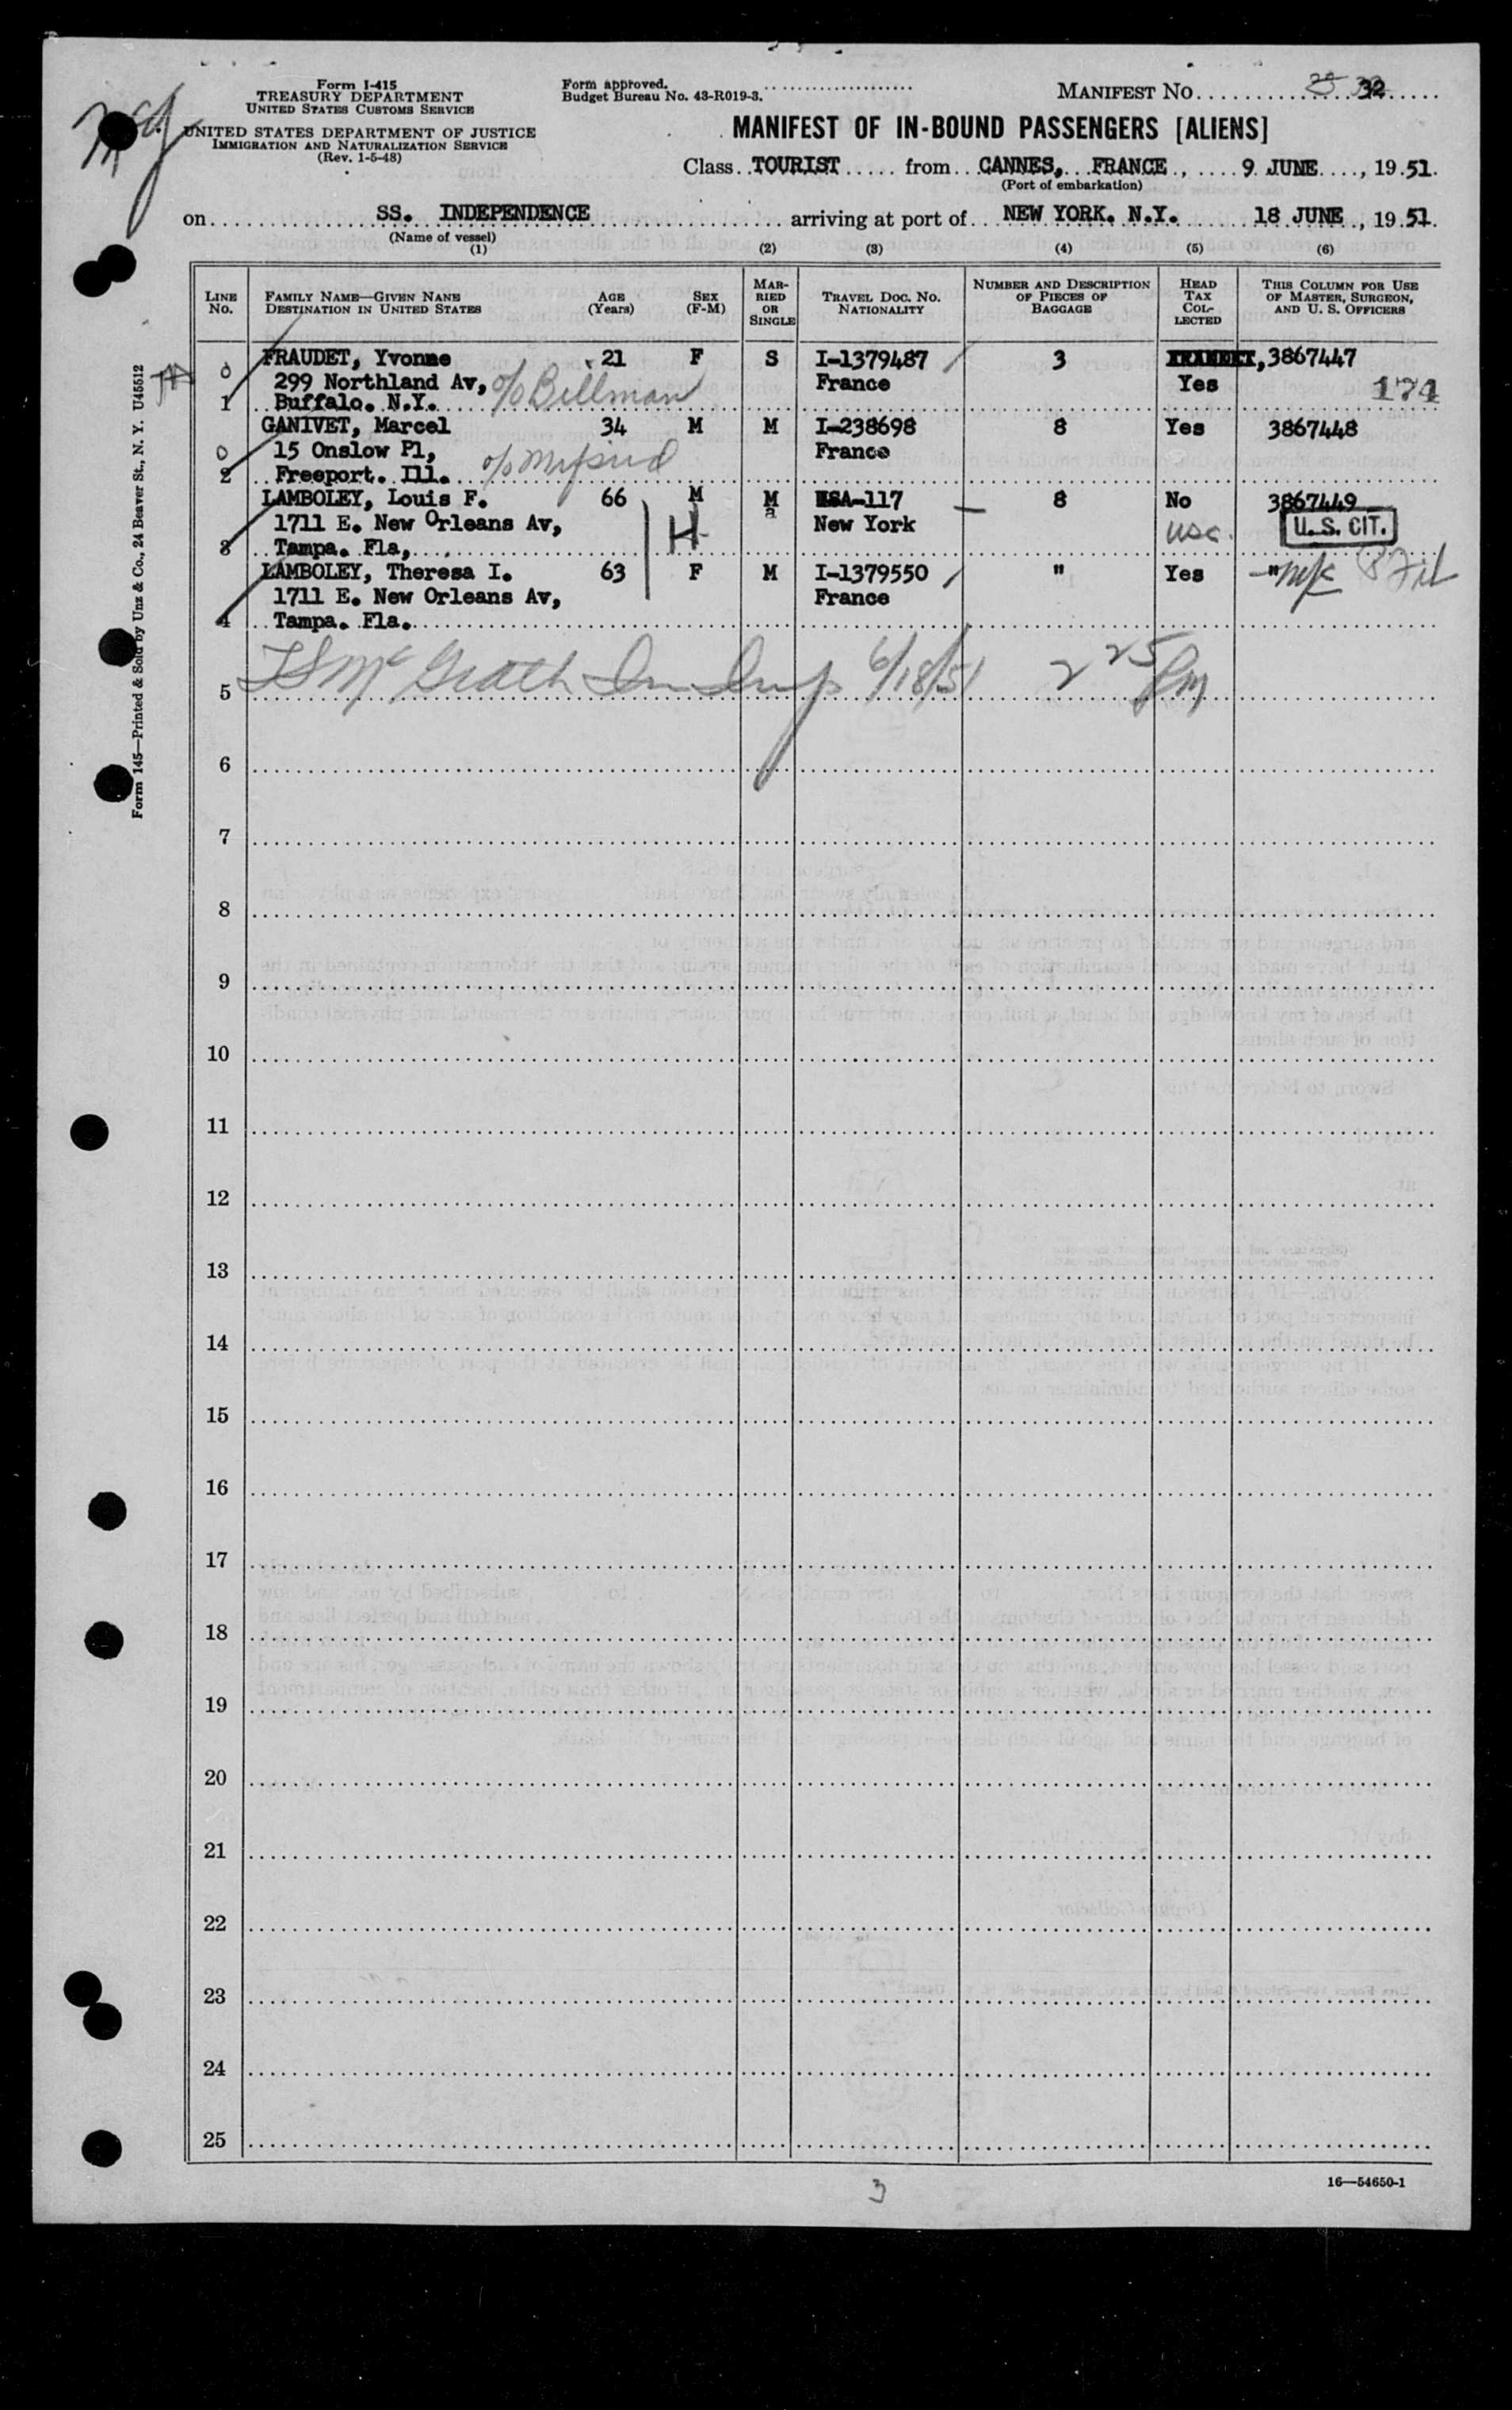 Form I-415
TREASURY DEPARTMENT
UNITED STATES CUSTOMS SERVICE
UNITED STATES DEPARTMENT OF JUSTICE
IMMIGRATION AND NATURALIZATION SERVICE
(Rev. 1-5-48)
Form approved.
Budget Bureau No. 43-R019-3.
MANIFEST NO. 32
MANIFEST OF IN-BOUND PASSENGERS [ALIENS]
Class TOURIST from CANNES, FRANCE, 9 JUNE, 1951.
(Port of embarkation)
on SS. INDEPENDENCE arriving at port of NEW YORK. N.Y. 18 JUNE, 1951.
(Name of vessel)
(1) (2) (3) (4) (5) (6)
LINE No. FAMILY NAME—GIVEN NANE DESTINATION IN UNITED STATES AGE (Years) SEX (F-M) MARRIED OR SINGLE TRAVEL DOC. NO. NATIONALITY NUMBER AND DESCRIPTION OF PIECES OF BAGGAGE HEAD TAX COLLECTED THIS COLUMN FOR USE OF MASTER, SURGEON, AND U. S. OFFICERS
FRAUDET, Yvonne 21 F S I-1379487 3 3867447
299 Northland Av, c/o Bellman France Yes 174
1 Buffalo. N.Y.
GANIVET, Marcel 34 M M I-238698 8 Yes 3867448
15 Onslow Pl, France
2 Freeport. Ill.
LAMBOLEY, Louis F. 66 M M USA-117 8 No 3867449
1711 E. New Orleans Av, H a New York usc. U.S. CIT.
3 Tampa. Fla,
LAMBOLEY, Theresa I. 63 F M I-1379550 " Yes "
1711 E. New Orleans Av, France
4 Tampa. Fla.
5 McGrath 6/18/51 2 25 pm
6
7
8
9
10
11
12
13
14
15
16
17
18
19
20
21
22
23
24
25
3
16—54650-1
Form 145—Printed & Sold by Unz & Co., 24 Beaver St., N. Y. U45512